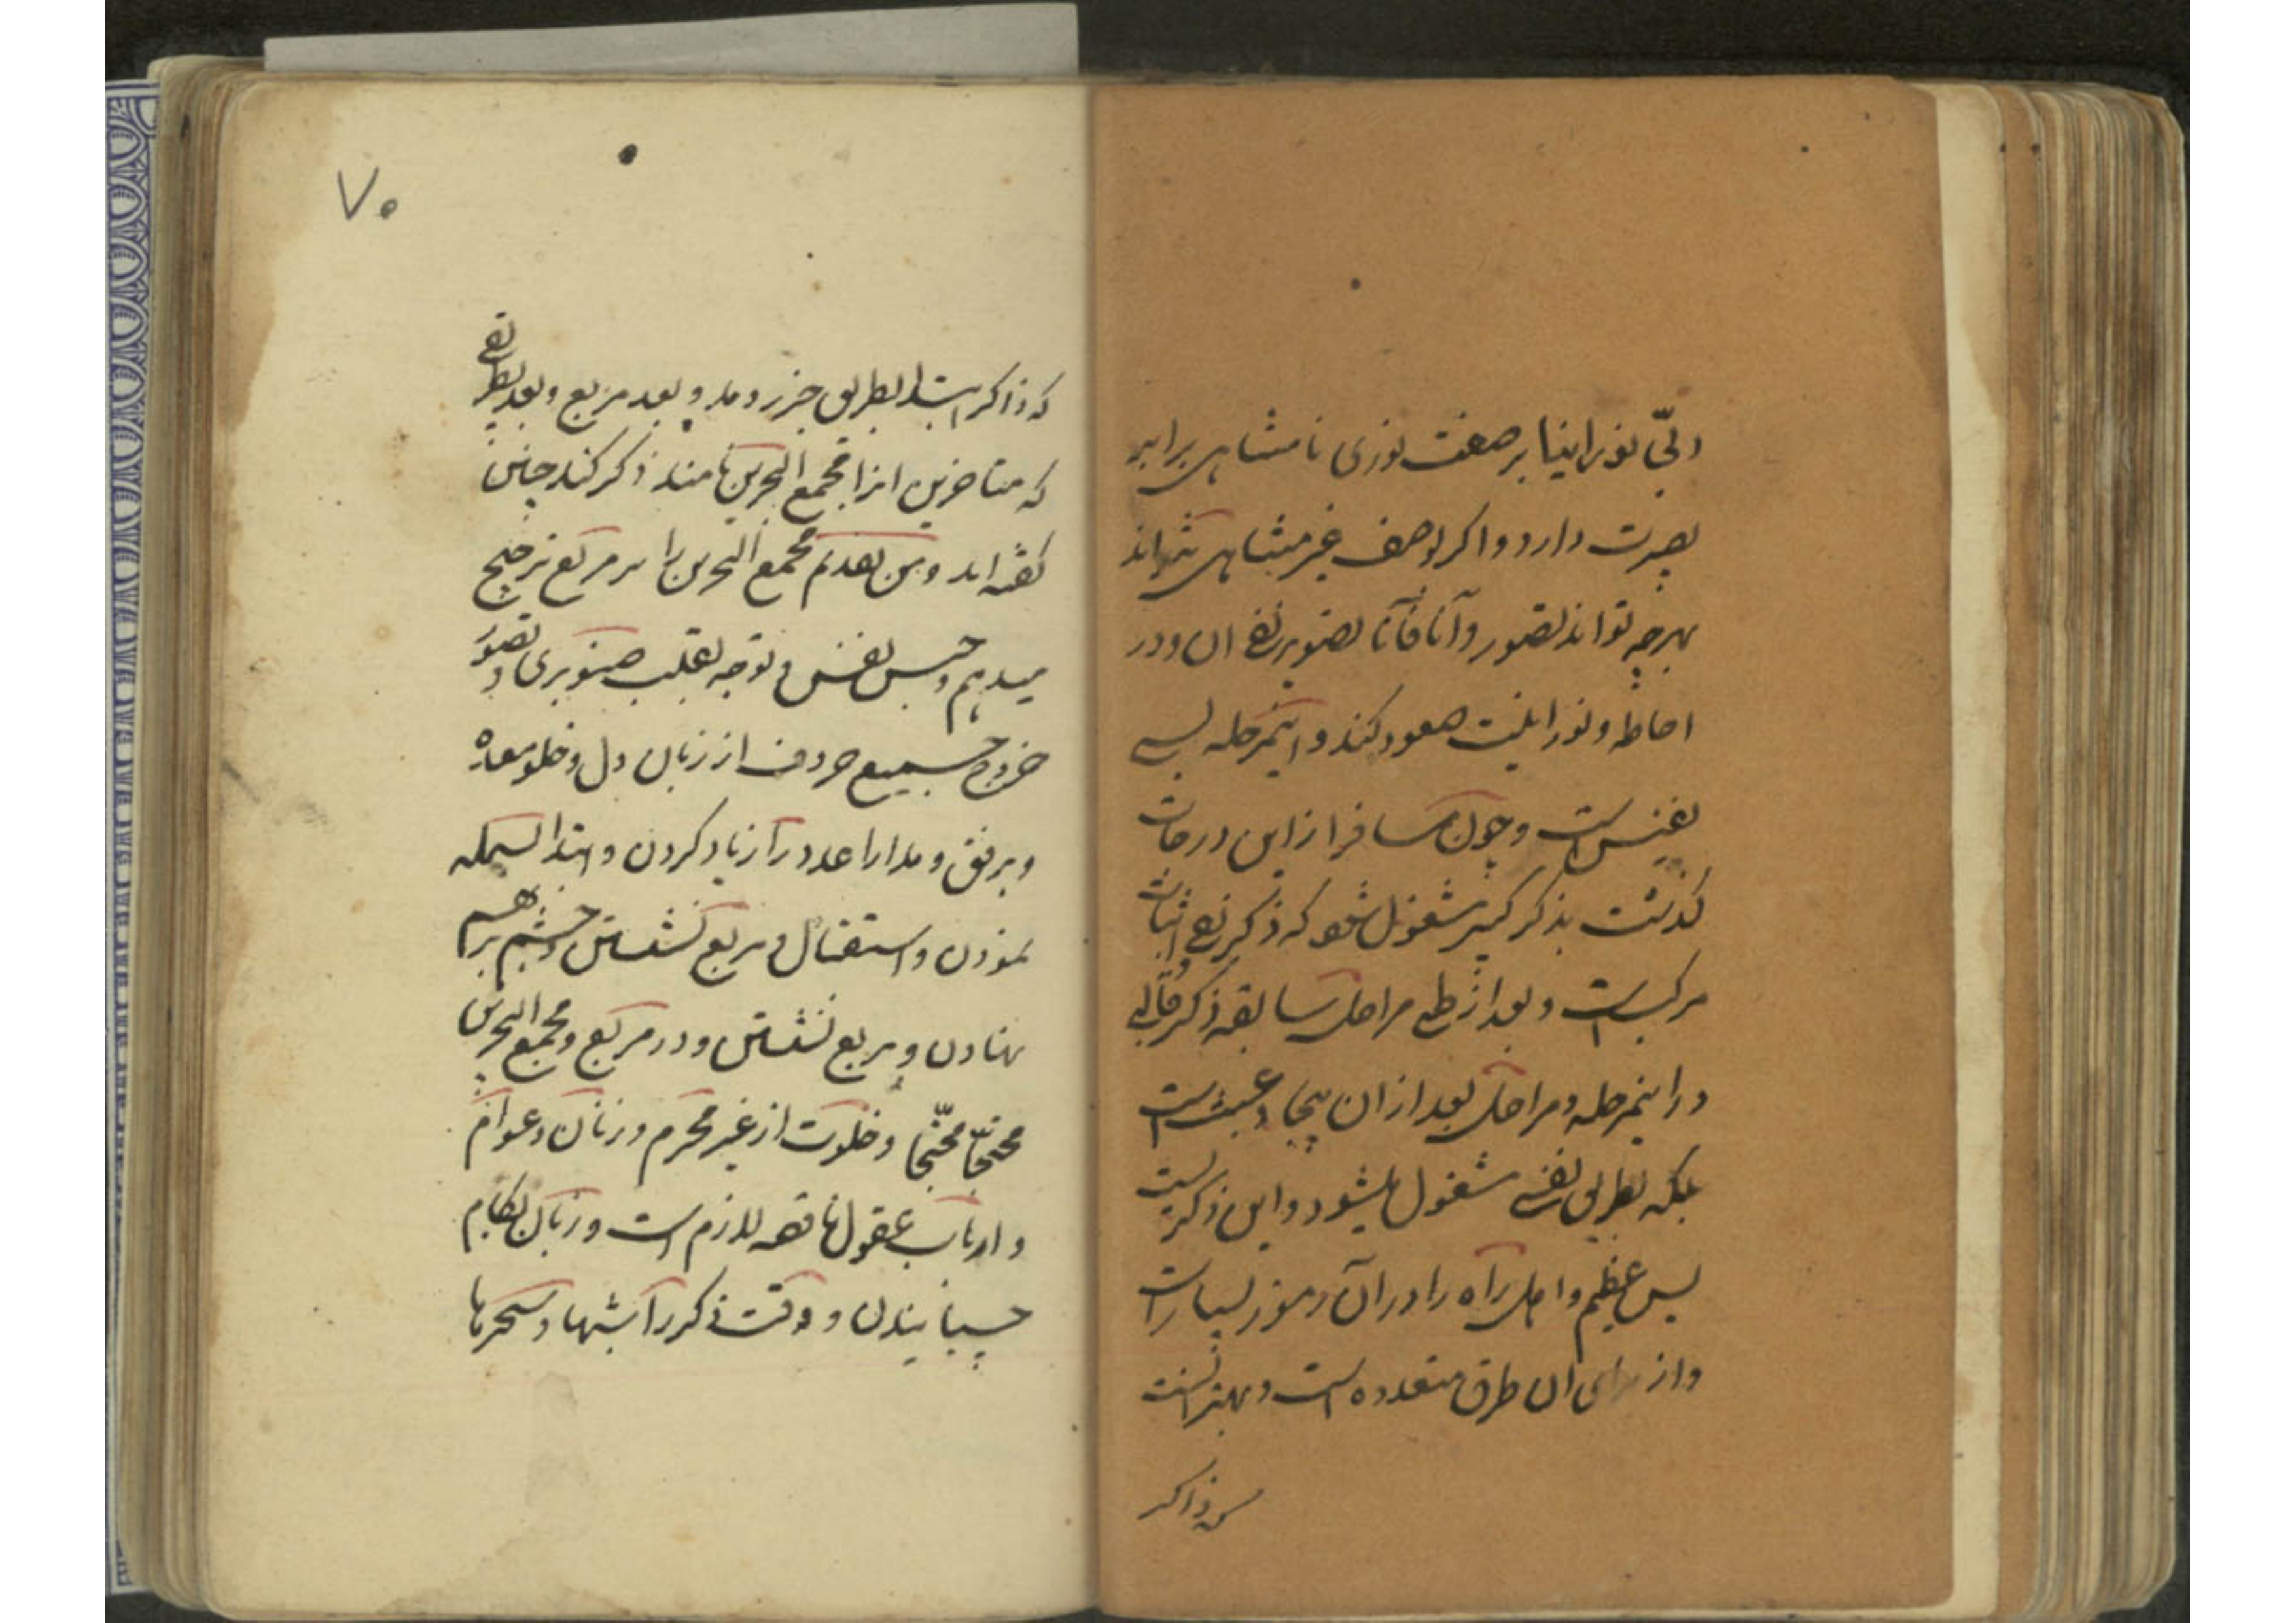 و بی نورانیا بر صفت نوری نامتناهی برابر
بصیرت دارد و اگر لوصف غیر متناهی نتواند
بهرچه تواند تصور و آنا فآنا تصویر نفی ان و در
احاطه و نورانیت صعود کند و اینمرحله بسی
نفیس است و چون مسافر از این درجات
گذشت بذکر کبیر مشغول شود که ذکر نفی و اثبات
مرکب است و بعد از طی مراحل سابقه ذکر قالبی
در اینمرحله و مراحل بعد از ان بیجا و عبث است
بلکه بطریق نفسی مشغول میشود و این ذکریست
بس عظیم و اهل راه را در آن رموز بسیار است
و از برای ان طرق متعدده است و بهتر انست
که ذاکر
۷۰
که ذاکر ابتدا بطریق جزر و مد و بعد مربع و بعد بطریقی
که متاخرین انرا مجمع البحرین نامند ذکر کند چنین
گفته اند و من بعدهم مجمع البحرین را بر مربع ترجیح
میدهم و حبس نفس و توجه بقلب صنوبری و تصور
خروج جمیع حروف از زبان دل و خلو معده
و برفق و مدارا عدد را زیاد کردن و ابتدا ببسمله
نمودن و استقبال و مربع نشستن و چشم بر هم
نهادن و مربع نشستن و در مربع و مجمع البحرین
و خلوت از غیر محرم و زنان و عوام
و ارباب عقول ناقصه لازم است و زبان بکام
چسبانیدن و وقت ذکر را شبها و سحرها